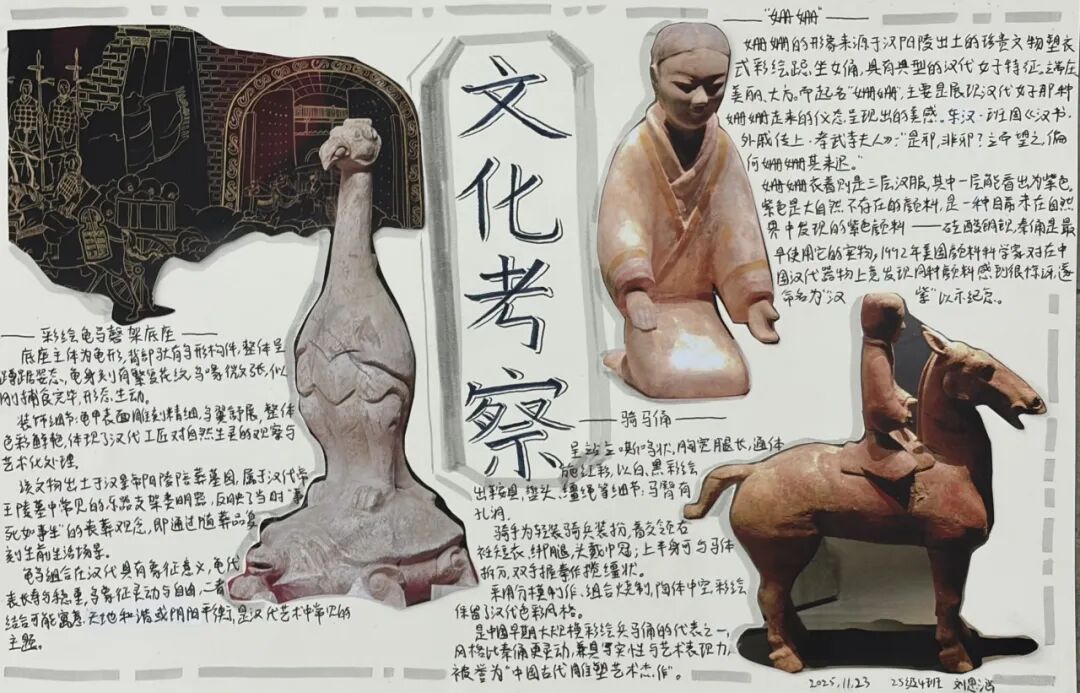 文化考察
"姗姗"
姗姗的形象来源于汉阳陵出土的珍贵文物塑衣
式彩绘跽坐女俑,具有典型的汉代女子特征,端庄
美丽、大方。而起名"姗姗",主要是展现汉代女子那种
姗姗走来的仪态呈现出的美感。东汉·班固《汉书·
外戚传上·孝武李夫人》:"是邪,非邪?立而望之,偏
何姗姗其来迟。"
姗姗衣着则是三层汉服,其中一层能看出为紫色。
紫色是大自然不存在的颜料,是一种目前未在自然
界中发现的紫色颜料——硅酸铜钡,秦俑是最
早使用它的实物,1992年美国颜料科学家对在中
国汉代器物上竟发现同种颜料感到很惊讶,遂
命名为"汉 紫"以示纪念。
彩绘龟鸟磬架底座
底座主体为龟形,背部驮有鸟形构件,整体呈
蹲踞姿态。龟身刻有繁复花纹,鸟喙微张,似
刚捕食完毕,形态生动。
装饰细节:龟甲表面雕刻精细,鸟翼舒展,整体
色彩鲜艳,体现了汉代工匠对自然生灵的观察与
艺术化处理。
该文物出土于汉景帝阳陵陪葬墓园,属于汉代帝
王陵墓中常见的乐器支架类明器,反映了当时"事
死如事生"的丧葬观念,即通过随葬品复
刻生前生活场景。
龟鸟组合在汉代具有象征意义,龟代
表长寿与稳重,鸟象征灵动与自由,二者
结合可能寓意天地和谐或阴阳平衡,是汉代艺术中常见的
主题。
骑马俑
呈站立嘶鸣状,胸宽腿长,通体
施红彩,以白、黑彩绘
出鞍具、辔头、缰绳等细节;马臀有
孔洞。
骑手为轻装骑兵装扮,着交领右
衽短衣,绑腿,头戴巾冠;上半身可与马体
拆分,双手握拳作揽缰状。
采用分模制作、组合烧制,陶体中空,彩绘
保留了汉代色彩风格。
是中国早期大规模彩绘兵马俑的代表之一,
风格比秦俑更灵动,兼具写实性与艺术表现力,
被誉为"中国古代雕塑艺术杰作"。
2025.11.23 25级4班 刘思